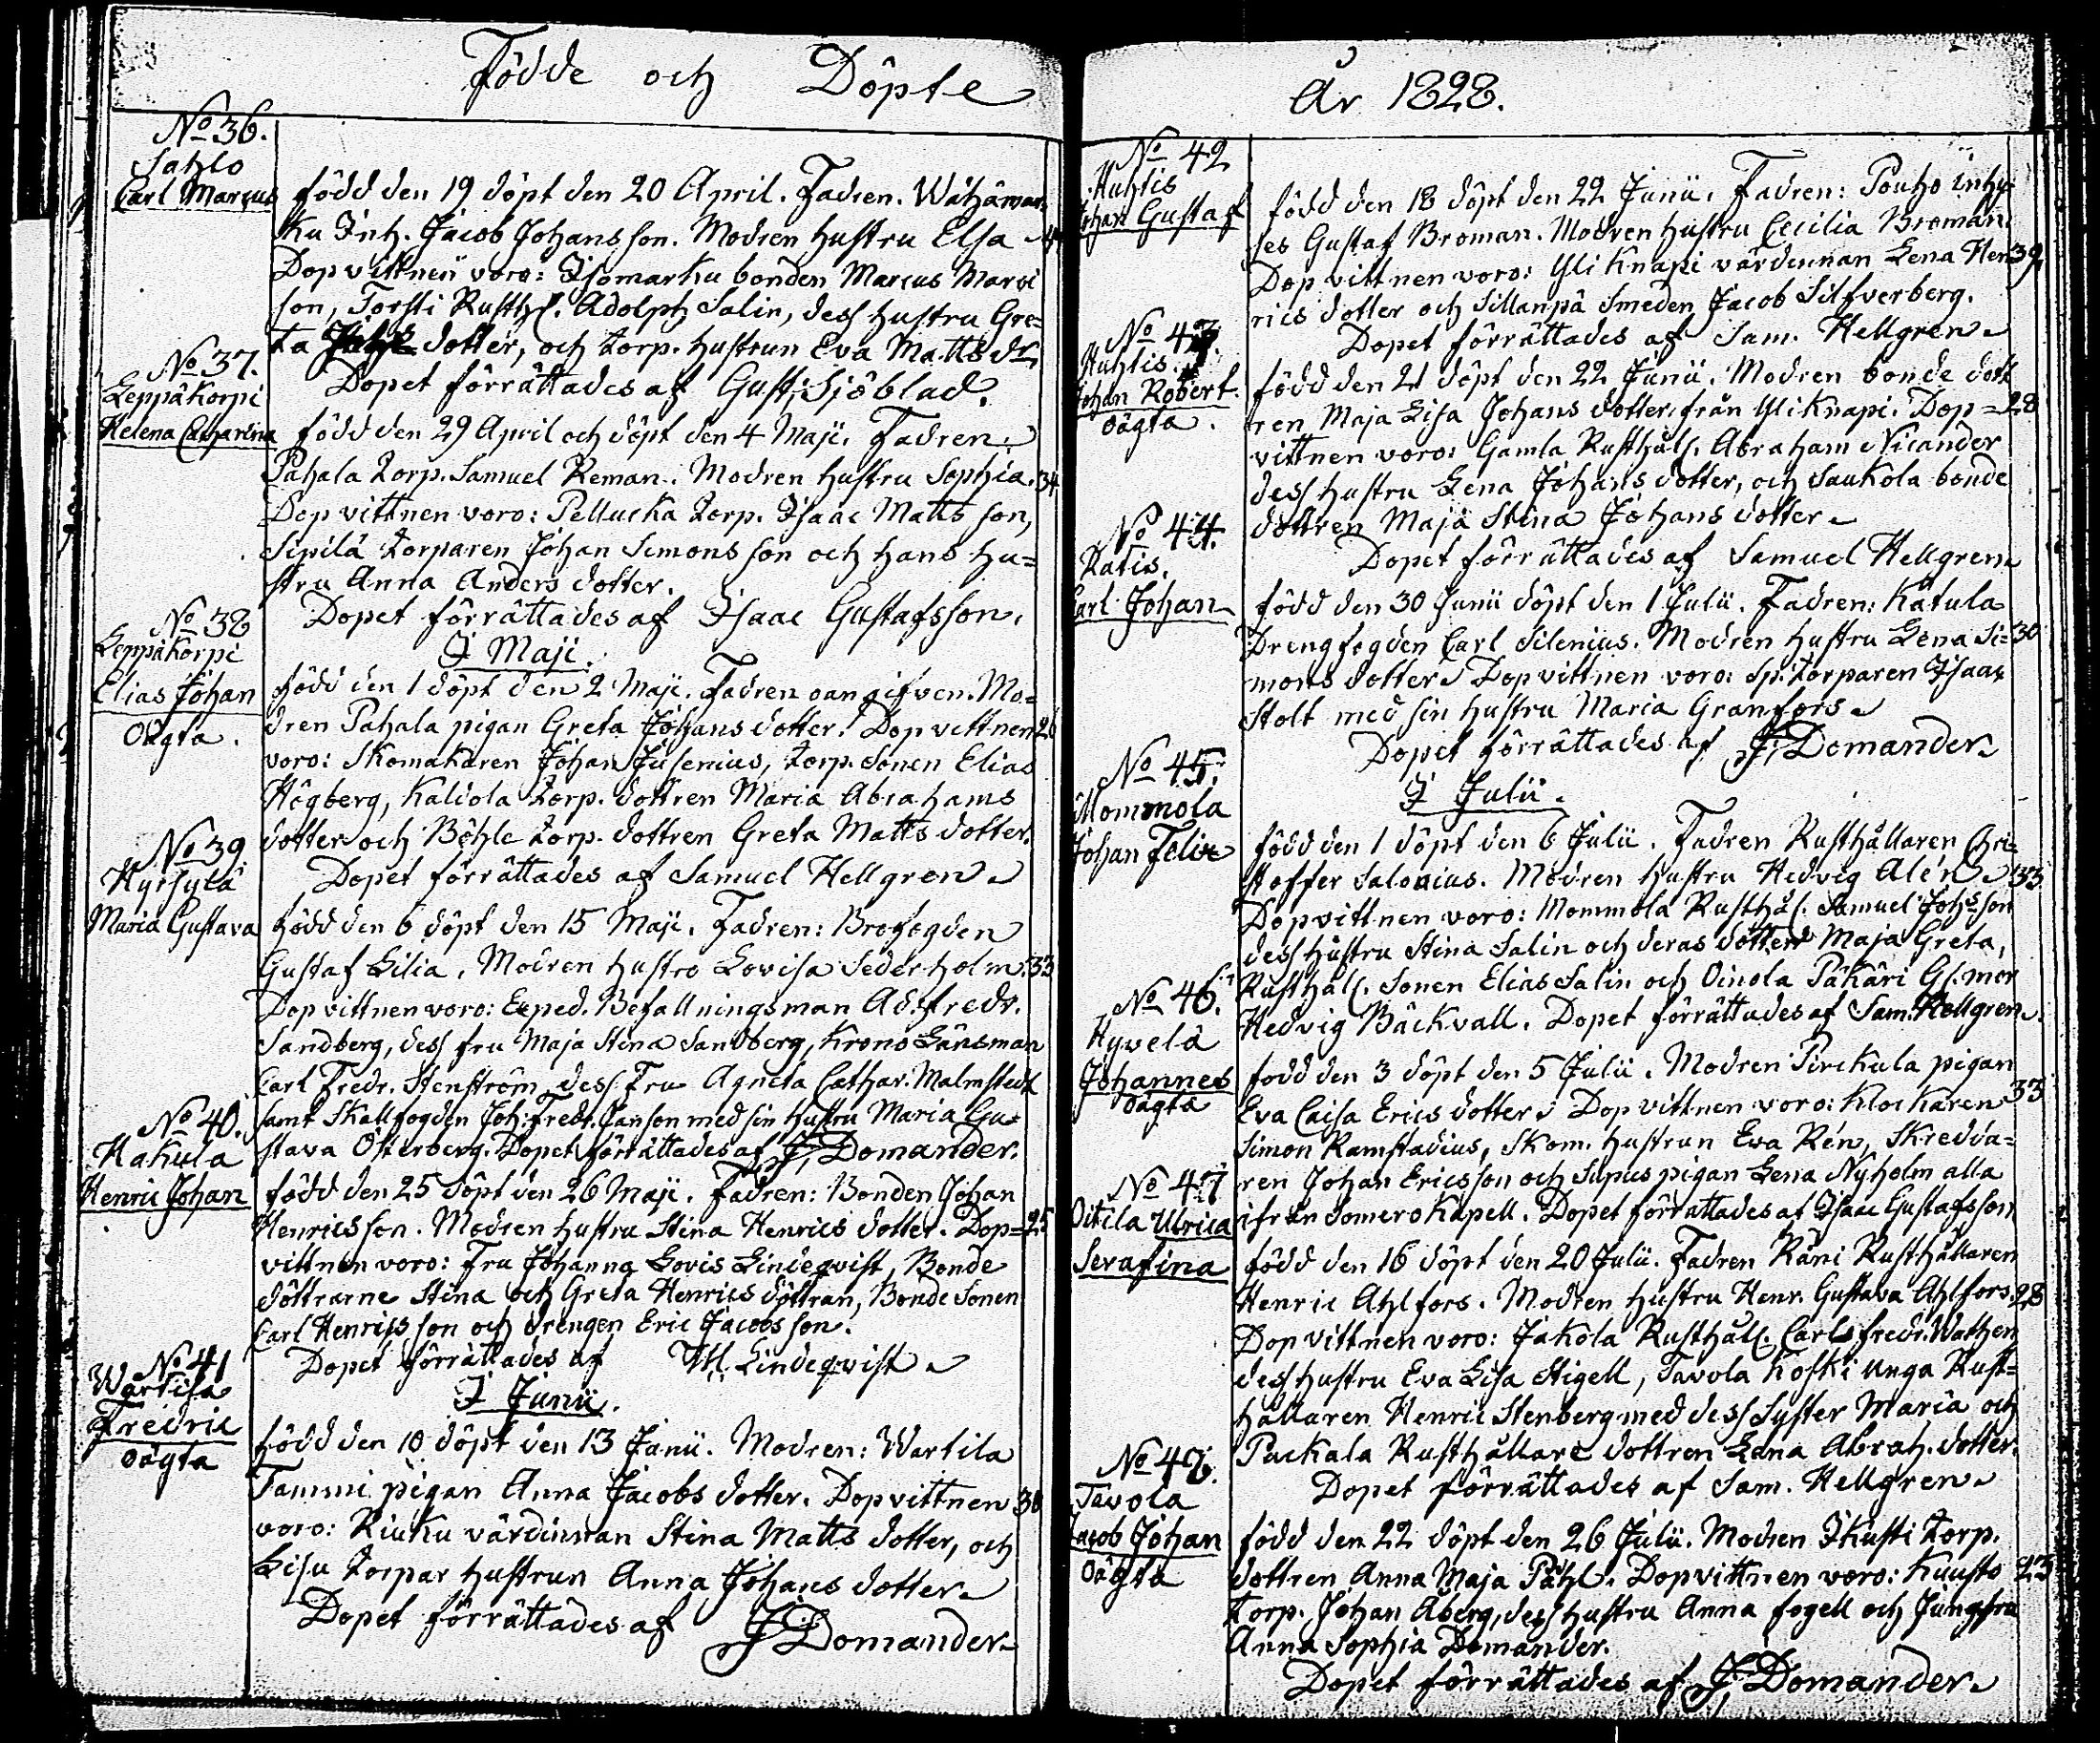 Födde och Döpte
No 36.
Sahlo
Carl Marcus
född den 19 döpt den 20 April. Fadren. Wähämar-
ku Inh. Jacob Johans son. Modren hustru Elsa
Dop vittnen voro: Isomarku bonden Marcus Marci
son, Torsti Rusth. Adolph Salin, dess hustru Gre-
ta dotter, och torp. hustrun Eva Matts dr,
Dopet förrättades af Gust. Sjöblad.
No 37.
Leppäkorpi
Helena Catharina
född den 29 April och döpt den 4 Maji. Fadren:
Pahala torp. Samuel Reman. Modren hustru Sophia. 34
Dop vittnen voro: Pellucka torp. Isaac Matts son,
Sipilä torparen Johan Simons son och hans hu-
stru Anna Anders dotter.
Dopet förrättades af Isaac Gustafsson.
I Maji.
No 38
Leppäkorpi
Elias Johan
Oägta.
född den 1 döpt den 2 Maji. Fadren oangifven. Mo-
dren Pahala pigan Greta Johans dotter. Dop vittnen 26
voro: Skomakaren Johan Jusenius, torp. sonen Elias
Högberg, Kaliola torp. dottren Maria Abrahams
dotter och Böhle torp. dottren Greta Matts dotter.
Dopet förrättades af Samuel Hellgren
No 39.
Hyrsylä
Maria Gustava
född den 6 döpt den 15 Maji. Fadren: Brofogden
Gustaf Lilia. Modren hustro Lovisa Sederholm. 33
Dop vittnen voro: Exped. Befallningsman Ad. fredr.
Sandberg, dess fru Maja Stina Sandberg, Krono Länsman
Carl Fredr. Stenström, dess Fru Agneta Cathar. Malmstedt
samt Skallfogden Joh: Fredr. Janson med sin hustru Maria Gu-
stava Österberg. Dopet förrättades af J. Domander.
No 40.
Hakula
Henric Johan
född den 25 döpt den 26 Maji. Fadren: Bonden Johan
Henricsson. Modren hustru Stina Henrics dotter. Dop- 25
vittnen voro: Fru Johanna Lovis Lindeqvist, Bonde
döttrarne Stina och Greta Henrics döttran, Bonde Sonen
Carl Henrics son och drengen Eric Jacobs son.
Dopet förrättades af Lindeqvist
I Junii.
No 41
Wartila
Fredric
oägta
född den 10 döpt den 13 Junii. Modren: Wartila
Tammi pigan Anna Jacobs dotter. Dop vittnen 30
voro: Kiuku värdinnan Stina Matts dotter, och
Lisu torpar hustrun Anna Johans dotter
Dopet förrättades af J Domander
År 1828.
No 42
Kuhtis
Johan Gustaf
född den 18 döpt den 22 Junii. Fadren: Pouho inhy-
ses Gustaf Broman. Modren hustru Cecilia Broman. 39.
Dop vittnen voro: Yli Knapi värdinnan Lena Hen-
rics dotter och Sillanpä Smeden Jacob Silfverberg.
Dopet förrättades af Sam. Hellgren
No 43.
Kuhtis.
Johan Robert.
oägta.
född den 21 döpt den 22 Junii. Modren bonde dott-
ren Maja Lisa Johans dotter från Yli Knapi. Dop- 28
vittnen voro: Gamla Rusthål. Abraham Nicander
dess hustru Lena Johans dotter, och Saukola bonde
dottren Maja Stina Johans dotter
Dopet förrättades af Samuel Hellgren
No 44.
Ratis.
Carl Johan
född den 30 Junii döpt den 1 Julii. Fadren: Kätula
Drengfogden Carl Silenius. Modren hustru Lena Si- 30
mons dotter. Dop vittnen voro: Sp. torparen Isaac
Stolt med sin hustru Maria Granfors
Dopet förrättades af J. Domander
I Julii.
No 45.
Mommola
Johan Felix
född den 1 döpt den 6 Julii. Fadren Rusthållaren Chri-
stoffer Salonius. Modren hustru Hedvig Alén 33
Dop vittnen voro: Mommola Rusthål. Samuel Johsson
dess hustru Stina Salin och deras dotter Maja Greta,
Rusthål. Sonen Elias Salin och Oinola Päkäri Gl. mor
Hedvig Bäckvall. Dopet förrättades af Sam. Hellgren.
No 46.
Hyvelä
Johannes
oägta
född den 3 döpt den 5 Julii. Modren Pirckula pigan
Eva Caisa Erics dotter. Dop vittnen voro: Klockaren 33
Simon Ramstadius, Skom. hustrun Eva Rén, Skredda-
ren Johan Ericsson och Supus pigan Lena Nyholm alla
ifrån Somero Kapell. Dopet förrättades af Isaac Gustafsson
No 47
Oitila Ulrica
Serafina
född den 16 döpt den 20 Julii. Fadren Räni Rusthållaren
Henric Ahlfors. Modren hustru Henr. Gustava Ahlfors. 28
Dop vittnen voro: Jakola Rusthål. Carl fredr. Wathen
dess hustru Eva Lisa Stigell, Tavola Koski unga Rust-
hållaren Henric Stenberg med dess Syster Maria och
Puckala Rusthållare dottren Lena Abrah. dotter.
Dopet förrättades af Sam. Hellgren
No 48.
Tavola
Jacob Johan
Oägta
född den 22 döpt den 26 Julii. Modren Ikusti torp.
dottren Anna Maja Påhl. Dopvittnen voro: Kuusto 23
torp. Johan Åberg, dess hustru Anna fogell och Jungfru
Anna Sophia Domander.
Dopet förrättades af J. Domander